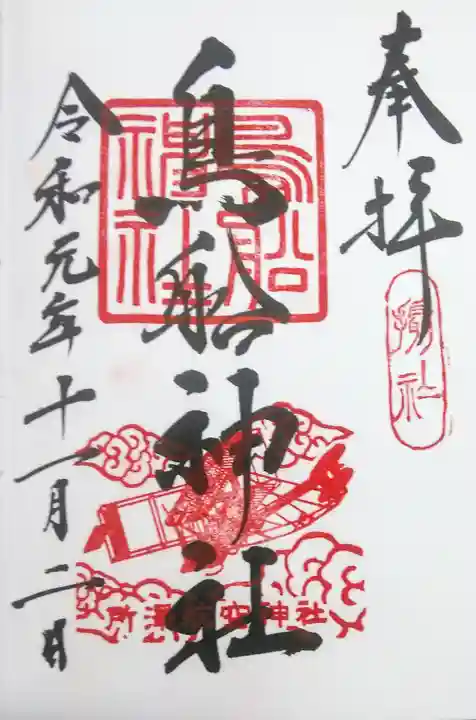 奉拝
摂社
鳥船神社
鳥船神社
所澤航空神社
令和元年十一月二日